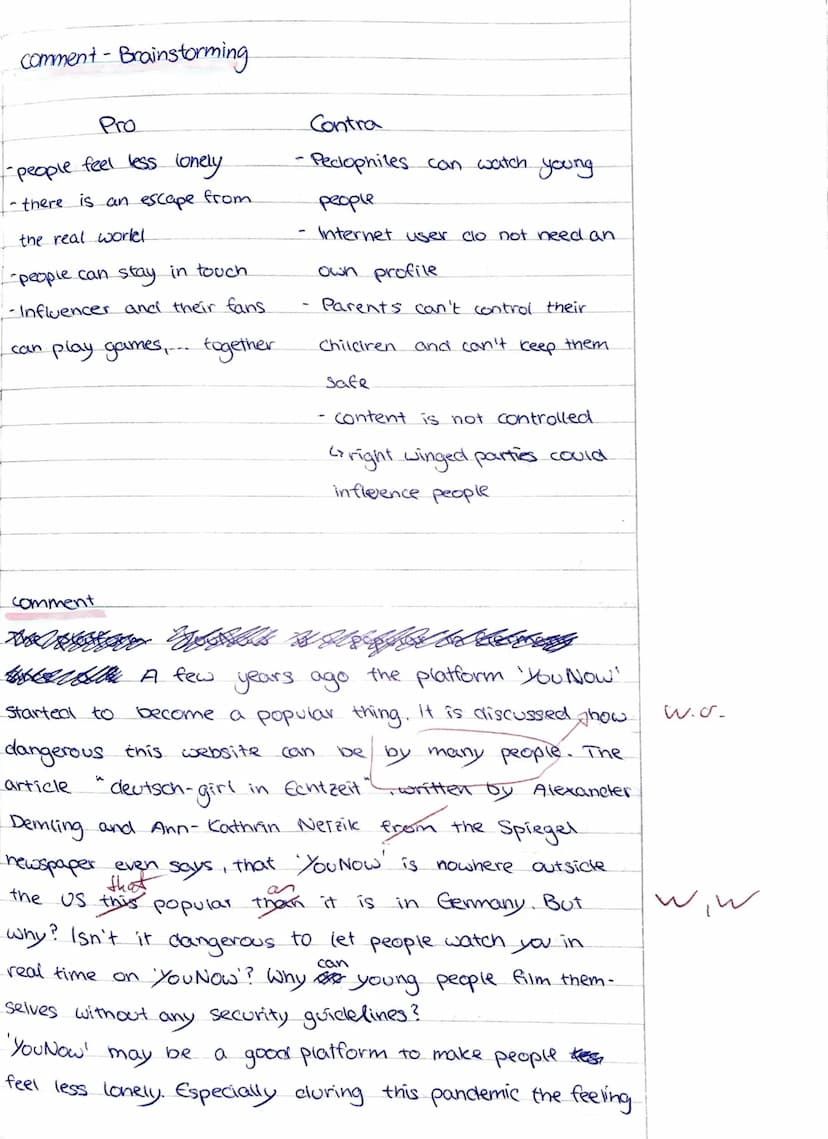 comment - Brainstorming
Pro
- people feel less lonely
- there is an escape from
the real world
- people can stay in touch
- Influencer and their fans
can play games,... together
Contra
- Pedophiles can watch young
people
- Internet user do not need an
own profile
- Parents can't control their
children and can't keep them
safe
- content is not controlled
↳ right winged parties could
influence people
comment
A few years ago the platform 'YouNow'
started to become a popular thing. It is discussed, how W.O.
dangerous this website can be by many people. The
article "deutsch-girl in Echtzeit", written by Alexander
Demling and Ann-Kathrin Nezik from the Spiegel
newspaper even says, that 'YouNow' is nowhere outside
that as
the US this popular than it is in Germany. But W, W
why? Isn't it dangerous to let people watch you in
can
real time on 'YouNow'? Why young people film them-
selves without any security guidelines?
'YouNow' may be a good platform to make people
feel less lonely. Especially during this pandemic the feeling